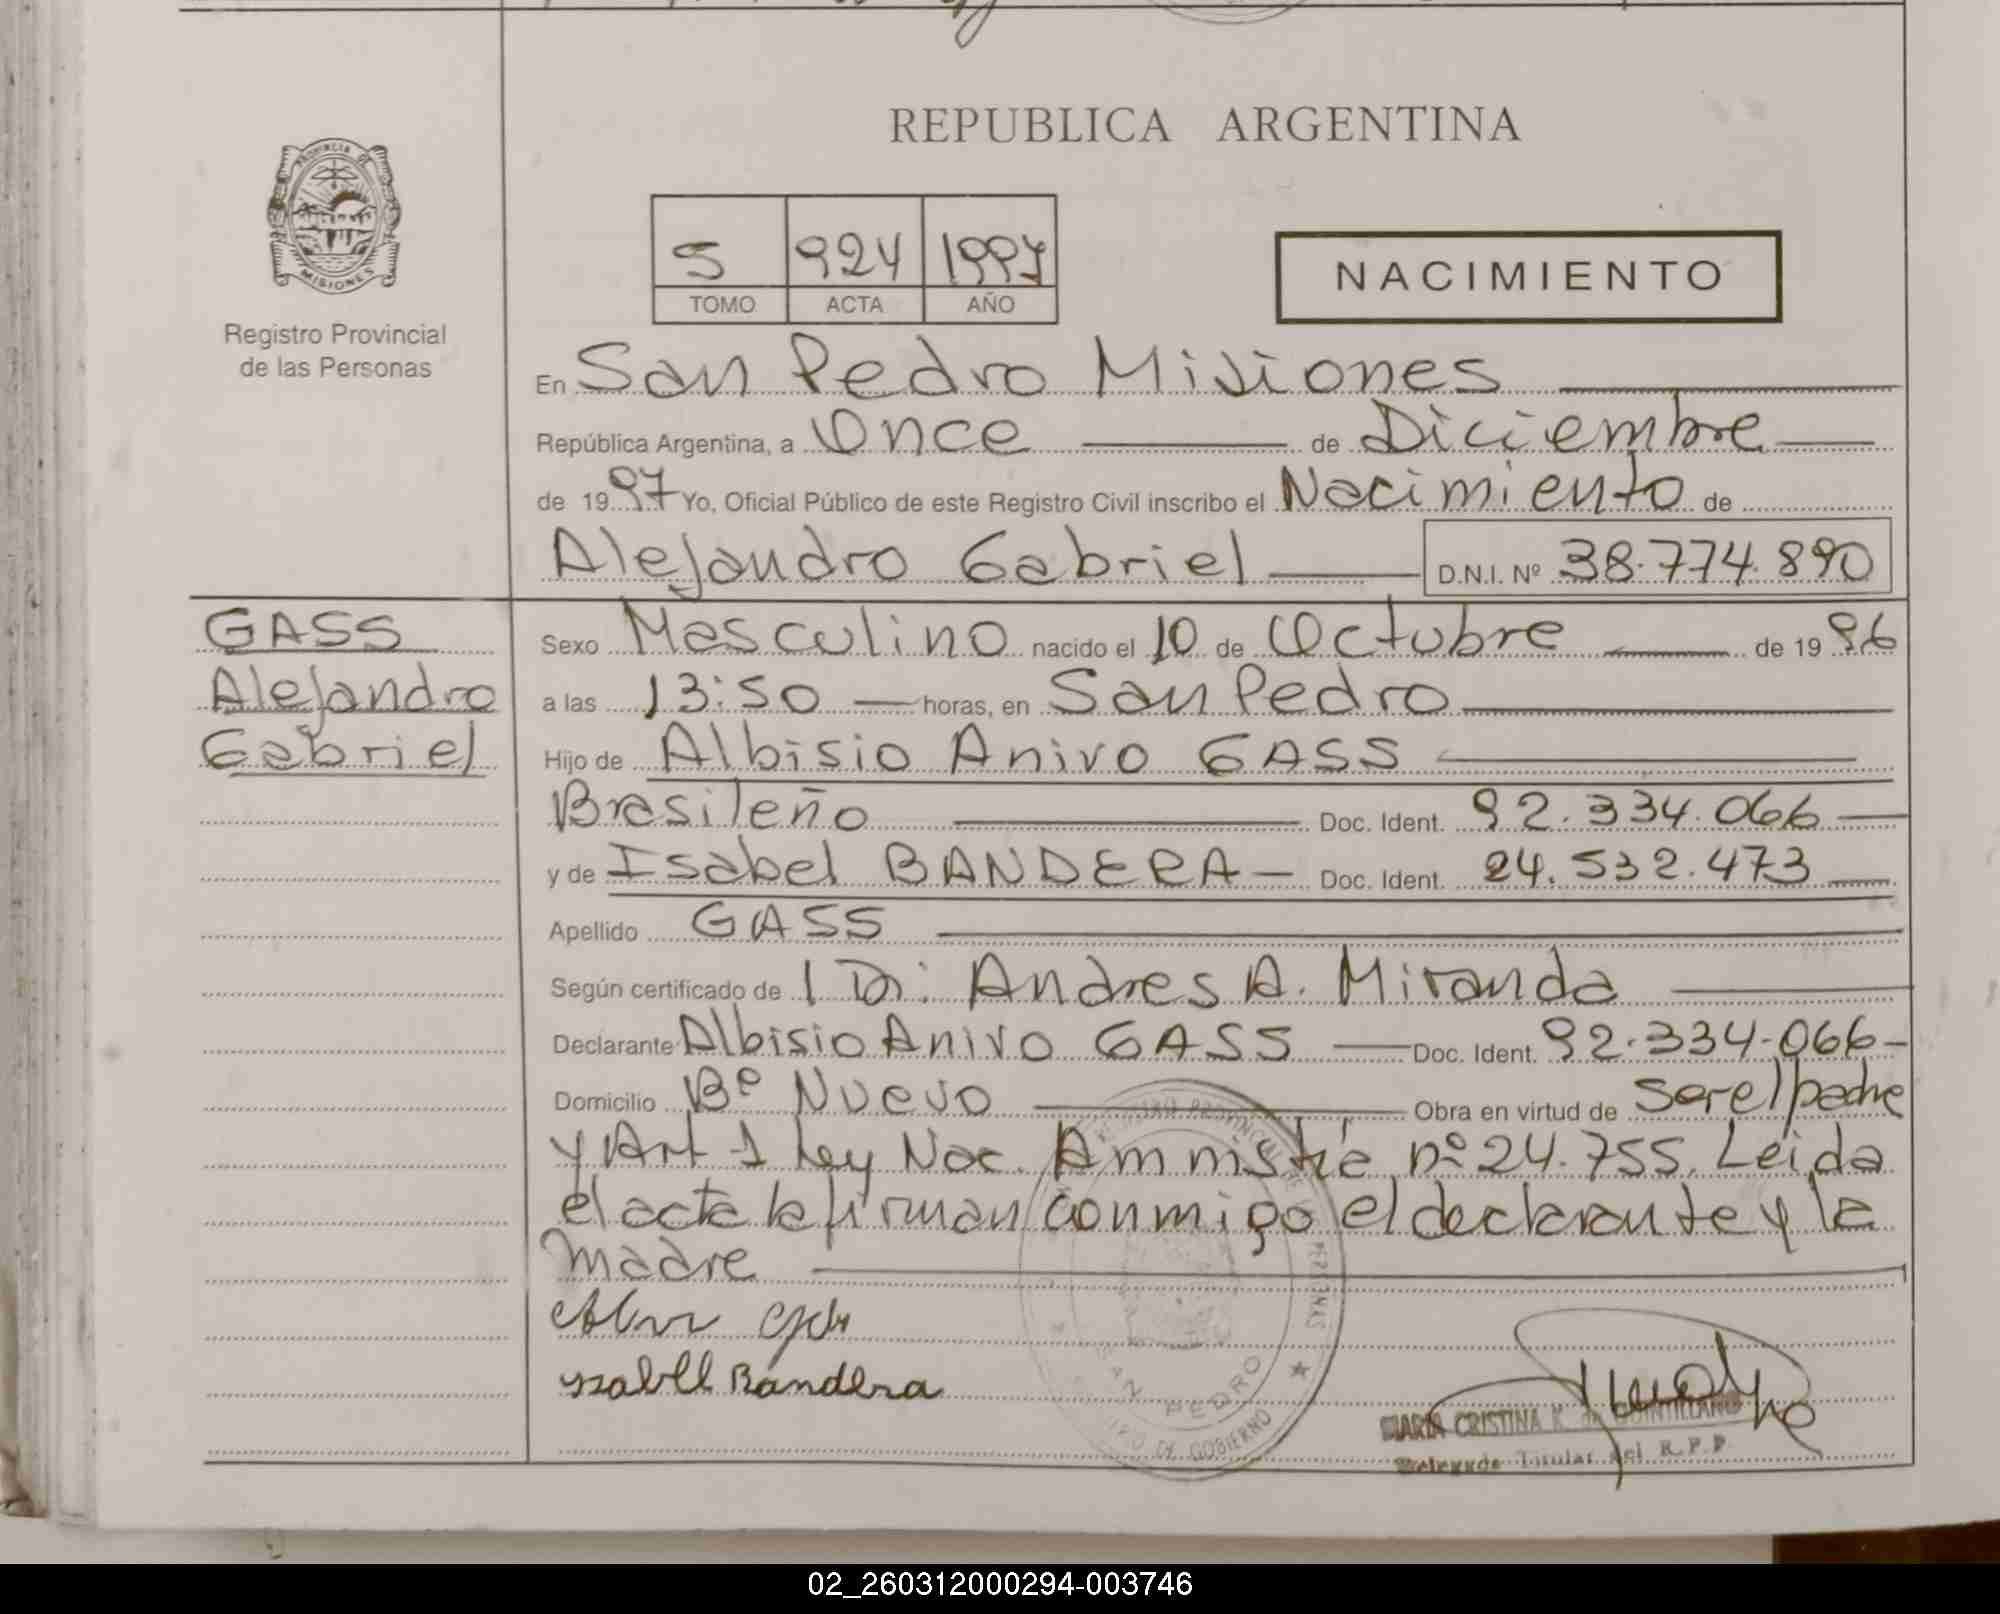 REPUBLICA ARGENTINA
PROVINCIA DE
MISIONES
Registro Provincial
de las Personas
5 924 1997
TOMO ACTA AÑO
NACIMIENTO
En San Pedro Misiones
República Argentina, a Once de Diciembre
de 1997 Yo, Oficial Público de este Registro Civil inscribo el Nacimiento de
Alejandro Gabriel D.N.I. Nº 38.774.890
GASS
Alejandro
Gabriel
Sexo Masculino nacido el 10 de Octubre de 1996
a las 13:50 horas, en San Pedro
Hijo de Albisio Anivo GASS
Brasileño Doc. Ident. 92.334.066
y de Isabel BANDERA Doc. Ident. 24.532.473
Apellido GASS
Según certificado de Dr: Andres A. Miranda
Declarante Albisio Anivo GASS Doc. Ident. 92.334.066
Domicilio Bº Nuevo Obra en virtud de ser el padre
y Art 1 Ley Nac. Amnistia nº 24.755. Leida
el acta la firman conmigo el declarante y la
madre
Bandera
SAN PEDRO
DE GOBIERNO
MARIA CRISTINA K. de QUINTILLANO
Delegada Titular del R.P.P.
02_260312000294-003746